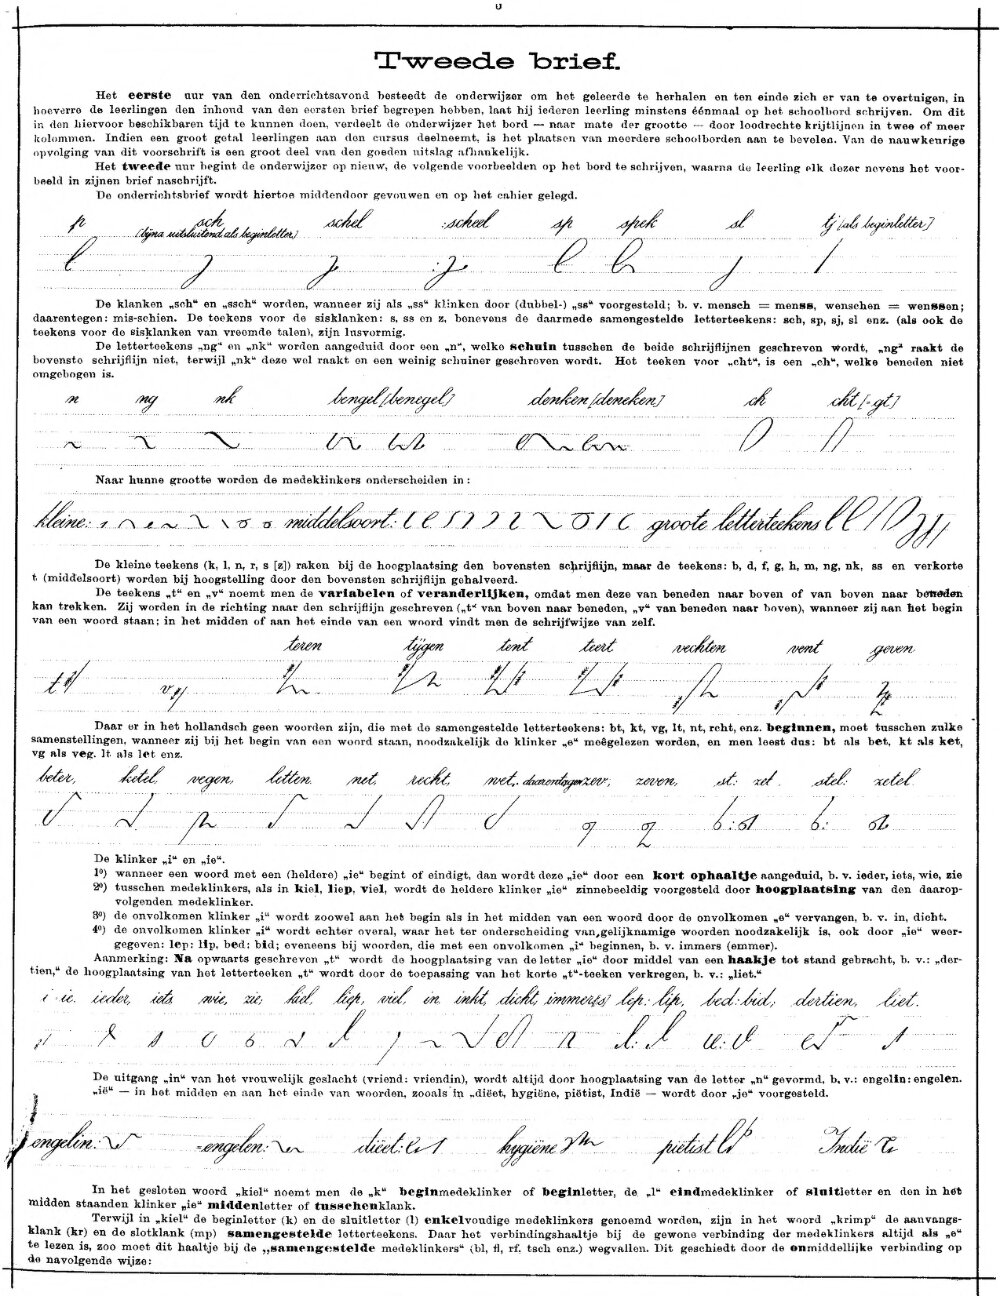 Tweede brief.
Het eerste uur van den onderrichtsavond besteedt de onderwijzer om het geleerde te herhalen en ten einde zich er van te overtuigen, in
hoeverre de leerlingen den inhoud van den eersten brief begrepen hebben, laat hij iederen leerling minstens éénmaal op het schoolbord schrijven. Om dit
in den hiervoor beschikbaren tijd te kunnen doen, verdeelt de onderwijzer het bord — naar mate der grootte — door loodrechte krijtlijnen in twee of meer
kolommen. Indien een groot getal leerlingen aan den cursus deelneemt, is het plaatsen van meerdere schoolborden aan te bevelen. Van de nauwkeurige
opvolging van dit voorschrift is een groot deel van den goeden uitslag afhankelijk.
Het tweede uur begint de onderwijzer op nieuw, de volgende voorbeelden op het bord te schrijven, waarna de leerling elk dezer nevens het voor-
beeld in zijnen brief naschrijft.
De onderrichtsbrief wordt hiertoe middendoor gevouwen en op het cahier gelegd.
p sch schel :scheel sp spek sl tj [als beginletter]
(bijna uitsluitend als beginletter)
De klanken „sch“ en „ssch“ worden, wanneer zij als „ss“ klinken door (dubbel-) „ss“ voorgesteld; b. v. mensch = menss, wenschen = wenssen;
daarentegen: mis-schien. De teekens voor de sisklanken: s, ss en z, benevens de daarmede samengestelde letterteekens: sch, sp, sj, sl enz. (als ook de
teekens voor de sisklanken van vreemde talen), zijn lusvormig.
De letterteekens „ng“ en „nk“ worden aangeduid door een „n“, welke schuin tusschen de beide schrijflijnen geschreven wordt, „ng“ raakt de
bovenste schrijflijn niet, terwijl „nk“ deze wel raakt en een weinig schuiner geschreven wordt. Het teeken voor „cht“, is een „ch“, welke beneden niet
omgebogen is.
n ng nk bengel [benegel] denken [deneken] ch cht [-gt]
Naar hunne grootte worden de medeklinkers onderscheiden in:
kleine: middelsoort: groote letterteekens
De kleine teekens (k, l, n, r, s [z]) raken bij de hoogplaatsing den bovensten schrijflijn, maar de teekens: b, d, f, g, h, m, ng, nk, ss en verkorte
t (middelsoort) worden bij hoogstelling door den bovensten schrijflijn gehalveerd.
De teekens „t“ en „v“ noemt men de variabelen of veranderlijken, omdat men deze van beneden naar boven of van boven naar beneden
kan trekken. Zij worden in de richting naar den schrijflijn geschreven („t“ van boven naar beneden, „v“ van beneden naar boven), wanneer zij aan het begin
van een woord staan; in het midden of aan het einde van een woord vindt men de schrijfwijze van zelf.
teren tijgen tent teert vechten vent geven
t v
Daar er in het hollandsch geen woorden zijn, die met de samengestelde letterteekens: bt, kt, vg, lt, nt, rcht, enz. beginnen, moet tusschen zulke
samenstellingen, wanneer zij bij het begin van een woord staan, noodzakelijk de klinker „e“ meêgelezen worden, en men leest dus: bt als bet, kt als ket,
vg als veg, lt als let enz.
beter, ketel, vegen, letten, net, recht, wet, daarentegen zev, zeven, st: zet stel: zetel
De klinker „i“ en „ie“.
1º) wanneer een woord met een (heldere) „ie“ begint of eindigt, dan wordt deze „ie“ door een kort ophaaltje aangeduid, b. v. ieder, iets, wie, zie
2º) tusschen medeklinkers, als in kiel, liep, viel, wordt de heldere klinker „ie“ zinnebeeldig voorgesteld door hoogplaatsing van den daarop-
volgenden medeklinker.
3º) de onvolkomen klinker „i“ wordt zoowel aan het begin als in het midden van een woord door de onvolkomen „e“ vervangen, b. v. in, dicht.
4º) de onvolkomen klinker „i“ wordt echter overal, waar het ter onderscheiding van gelijknamige woorden noodzakelijk is, ook door „ie“ weer-
gegeven: lep: lip, bed: bid; eveneens bij woorden, die met een onvolkomen „i“ beginnen, b. v. immers (emmer).
Aanmerking: Na opwaarts geschreven „t“ wordt de hoogplaatsing van de letter „ie“ door middel van een haakje tot stand gebracht, b. v.: „der-
tien,“ de hoogplaatsing van het letterteeken „t“ wordt door de toepassing van het korte „t“-teeken verkregen, b. v.: „liet.“
i ie. ieder, iets wie, zie, kiel, liep, viel, en inkt, dicht, immer(s) lep: lip, bed: bid, dertien, liet.
De uitgang „in“ van het vrouwelijk geslacht (vriend: vriendin), wordt altijd door hoogplaatsing van de letter „n“ gevormd, b. v.: engelin: engelen.
„ië“ — in het midden en aan het einde van woorden, zooals in „diëet, hygiëne, piëtist, Indië — wordt door „je“ voorgesteld.
engelin: -engelen: diëet: hygiëne piëtist Indië
In het gesloten woord „kiel“ noemt men de „k“ beginmedeklinker of beginletter, de „l“ eindmedeklinker of sluitletter en den in het
midden staanden klinker „ie“ middenletter of tusschenklank.
Terwijl in „kiel“ de beginletter (k) en de sluitletter (l) enkelvoudige medeklinkers genoemd worden, zijn in het woord „krimp“ de aanvangs-
klank (kr) en de slotklank (mp) samengestelde letterteekens. Daar het verbindingshaaltje bij de gewone verbinding der medeklinkers altijd als „e“
te lezen is, zoo moet dit haaltje bij de „samengestelde medeklinkers“ (bl, fl, rf, tsch enz.) wegvallen. Dit geschiedt door de onmiddellijke verbinding op
de navolgende wijze: